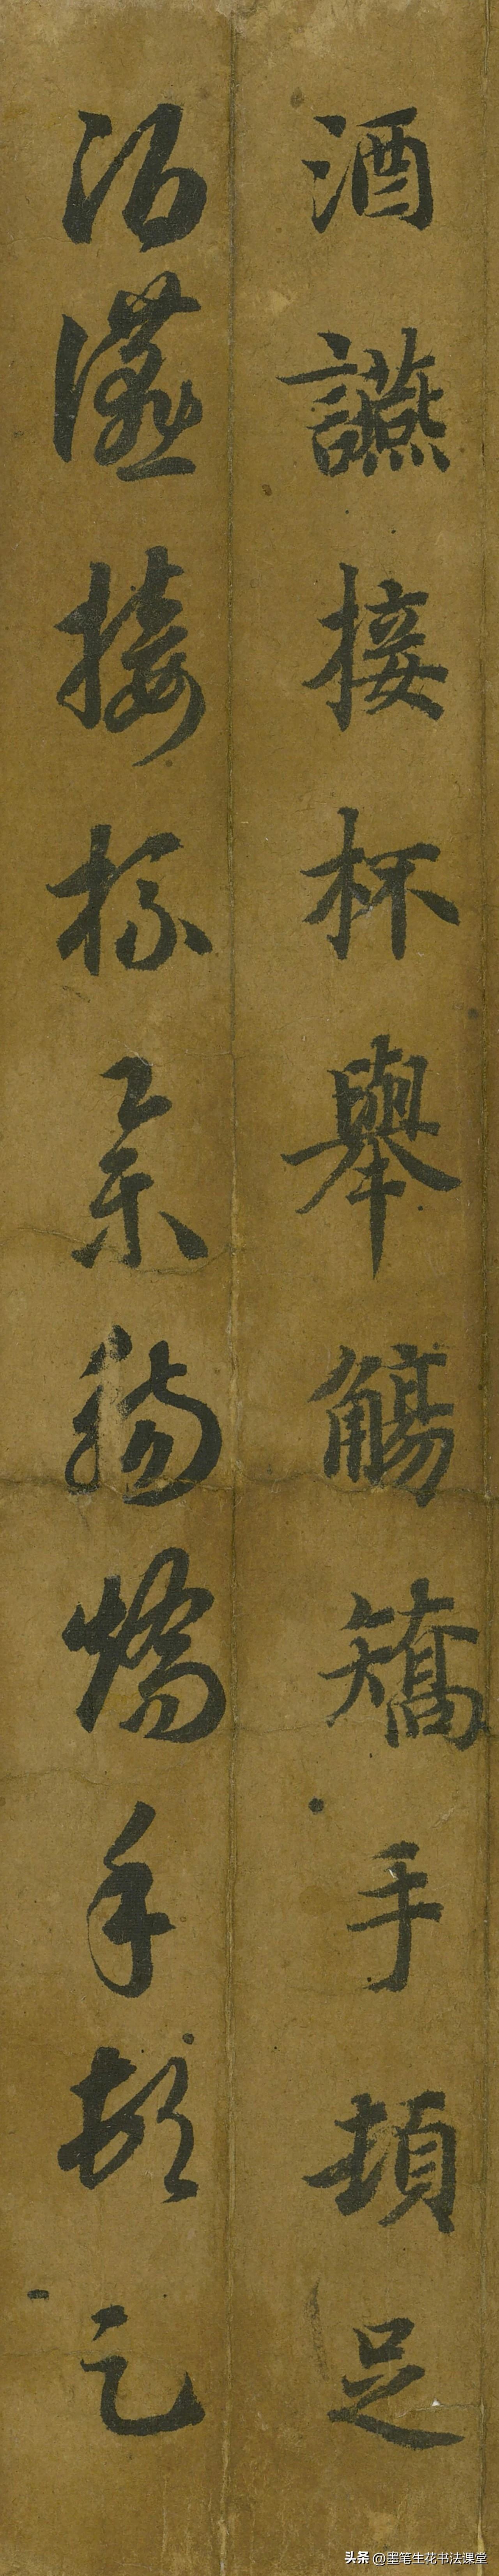 酒讌接杯舉觴矯手頓足
酒讌接杯舉觴矯手頓足
头条 @墨笔生花书法课堂